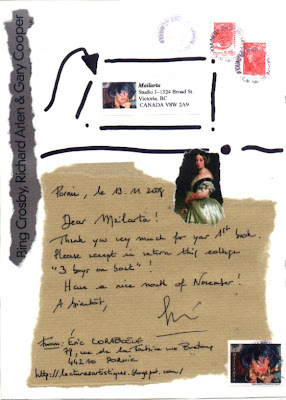 Bing Crosby, Richard Arlen & Gary Cooper
Mailarta
Studio J–1324 Broad St.
Victoria, BC
CANADA V8W 2A9
Pornic, le 13.11.2009
Dear Mailarta!
Thank you very much for your 1st book.
Please accept in return this collage
"3 boys on boat"!
Have a nice month of November!
A bientôt,
From: Éric
rue de la Fontaine aux Bretons
44210 PORNIC
http://lecturesartistiques.blogspot.com/